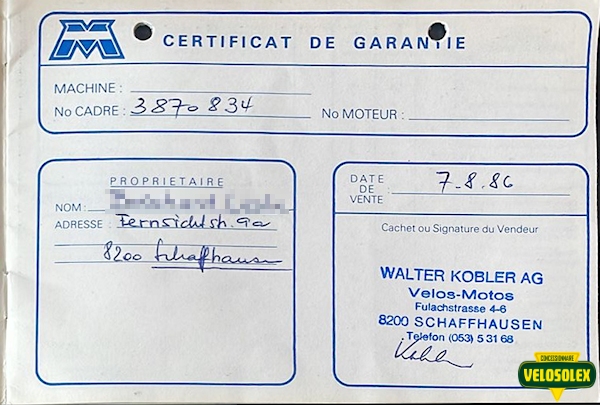 M
CERTIFICAT DE GARANTIE
MACHINE :
No CADRE : 3870834
No MOTEUR :
PROPRIETAIRE
NOM :
ADRESSE : Fernsichtstr. 9a
8200 Schaffhausen
DATE DE VENTE
7.8.86
Cachet ou Signature du Vendeur
WALTER KOBLER AG
Velos-Motos
Fulachstrasse 4-6
8200 SCHAFFHAUSEN
Telefon (053) 5 31 68
Kobler
CONCESSIONNAIRE
VELOSOLEX